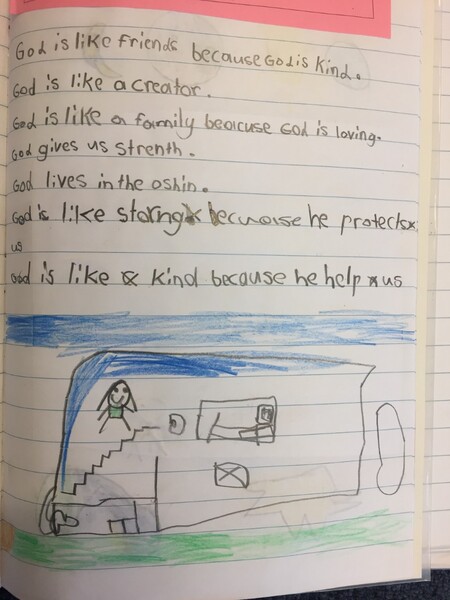 God is like friends because God is kind.
God is like a creator.
God is like a family bearcuse God is loving.
God gives us strenth.
God lives in the oshin.
God is like storng becuaise he protects
us
God is like kind because he help us